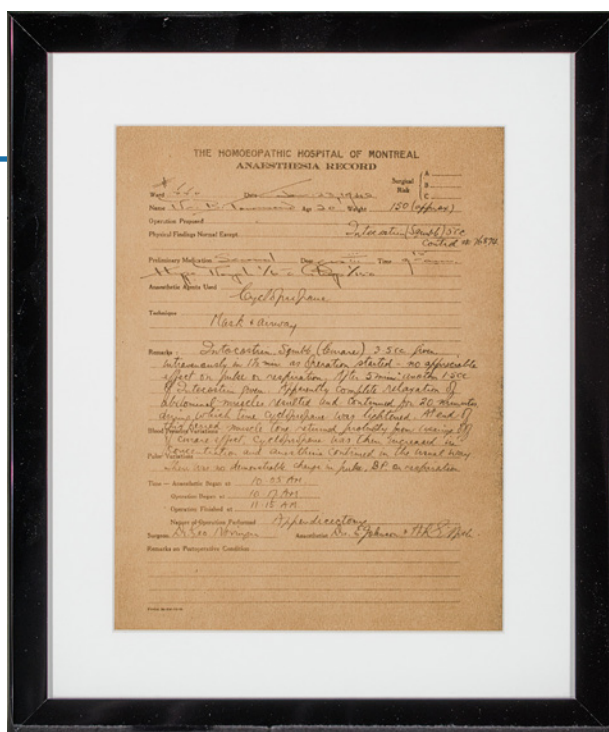 THE HOMOEOPATHIC HOSPITAL OF MONTREAL
ANAESTHESIA RECORD
Surgical Risk A
B
C
Ward Date
Name Age 20 Weight 150 (approx)
Operation Proposed
Physical Findings Normal Except Intocostrin (Squibb) 5cc
Control
Preliminary Medication Seconal Dose Time
Hypo
Anaesthetic Agents Used
Cyclopropane
Technique
Mask & airway
Remarks: Intocostrin, Squibb, (Curare) 3.5cc given
intravenously in 1½ min as operation started - no appreciable
effect on pulse or respiration. After 5 min another 1.5cc
of Intocostrin given. Apparently complete relaxation of
abdominal muscles resulted and continued for 20 minutes
during which time cyclopropane was lightened. At end of
this period muscle tone returned probably from wearing off
Blood Pressure Variations
of curare effect. Cyclopropane was then increased in
concentration and anaesthesia continued in the usual way.
Pulse Variations
There was no demonstrable change in pulse, B.P. or respiration
Time — Anaesthetic Began at 10.05 AM.
Operation Began at 10.17 AM.
Operation Finished at 11.15 AM.
Nature of Operation Performed Appendicectomy
Surgeon Dr. Geo. Novinger Anaesthetist Dr. E. Johnson &
Remarks on Postoperative Condition